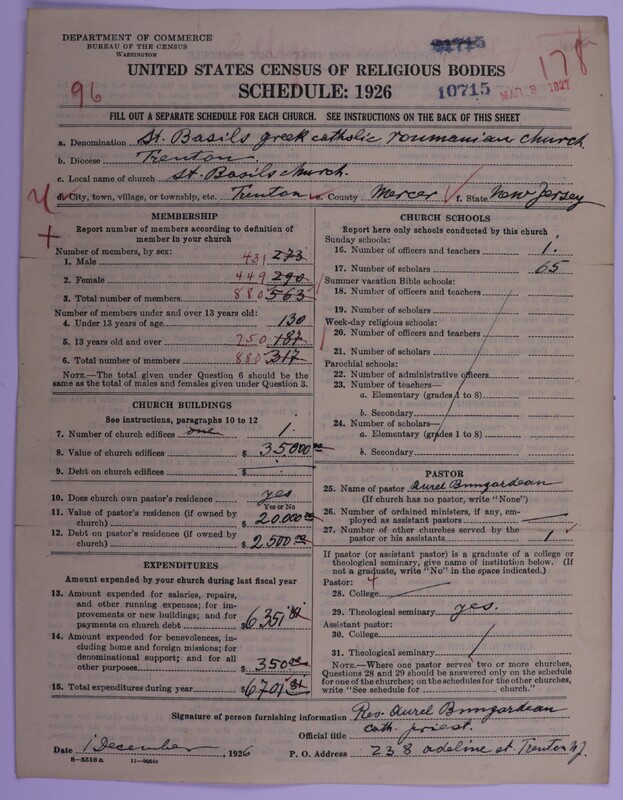 DEPARTMENT OF COMMERCE
BUREAU OF THE CENSUS
WASHINGTON
91715
178
UNITED STATES CENSUS OF RELIGIOUS BODIES
SCHEDULE: 1926
96
10715
MAR 3 1927
FILL OUT A SEPARATE SCHEDULE FOR EACH CHURCH. SEE INSTRUCTIONS ON THE BACK OF THIS SHEET
a. Denomination St. Basils greek catholic roumanian church
b. Diocese Trenton.
c. Local name of church St. Basils church.
d. City, town, village, or township, etc. Trenton e. County Mercer f. State New Jersey
MEMBERSHIP
Report number of members according to definition of member in your church
Number of members, by sex:
1. Male 431 273
2. Female 449 290
3. Total number of members 880 563
Number of members under and over 13 years old:
4. Under 13 years of age 130
5. 13 years old and over 250 187
6. Total number of members 880 317
NOTE.—The total given under Question 6 should be the same as the total of males and females given under Question 3.
CHURCH BUILDINGS
See instructions, paragraphs 10 to 12
7. Number of church edifices one 1.
8. Value of church edifices $ 35.000 00
9. Debt on church edifices $
10. Does church own pastor's residence yes
Yes or No
11. Value of pastor's residence (if owned by church) $ 20.000 00
12. Debt on pastor's residence (if owned by church) $ 2.500 00
EXPENDITURES
Amount expended by your church during last fiscal year
13. Amount expended for salaries, repairs, and other running expenses; for improvements or new buildings; and for payments on church debt $ 6351
14. Amount expended for benevolences, including home and foreign missions; for denominational support; and for all other purposes $ 350 00
15. Total expenditures during year $ 6701
CHURCH SCHOOLS
Report here only schools conducted by this church
Sunday schools:
16. Number of officers and teachers 1.
17. Number of scholars 65
Summer vacation Bible schools:
18. Number of officers and teachers
19. Number of scholars
Week-day religious schools:
20. Number of officers and teachers
21. Number of scholars
Parochial schools:
22. Number of administrative officers
23. Number of teachers—
a. Elementary (grades 1 to 8)
b. Secondary
24. Number of scholars—
a. Elementary (grades 1 to 8)
b. Secondary
PASTOR
25. Name of pastor Aurel Bungardean
(If church has no pastor, write "None")
26. Number of ordained ministers, if any, employed as assistant pastors
27. Number of other churches served by the pastor or his assistants 1
If pastor (or assistant pastor) is a graduate of a college or theological seminary, give name of institution below. (If not a graduate, write "No" in the space indicated.)
Pastor: 4
28. College
29. Theological seminary yes.
Assistant pastor:
30. College
31. Theological seminary
NOTE.—Where one pastor serves two or more churches, Questions 28 and 29 should be answered only on the schedule for one of the churches; on the schedules for the other churches, write "See schedule for church."
Signature of person furnishing information Rev. Aurel Bungardean
Official title cath. priest.
Date 1 December, 1926 P. O. Address 238 adeline st. Trenton N.J.
8-5518a